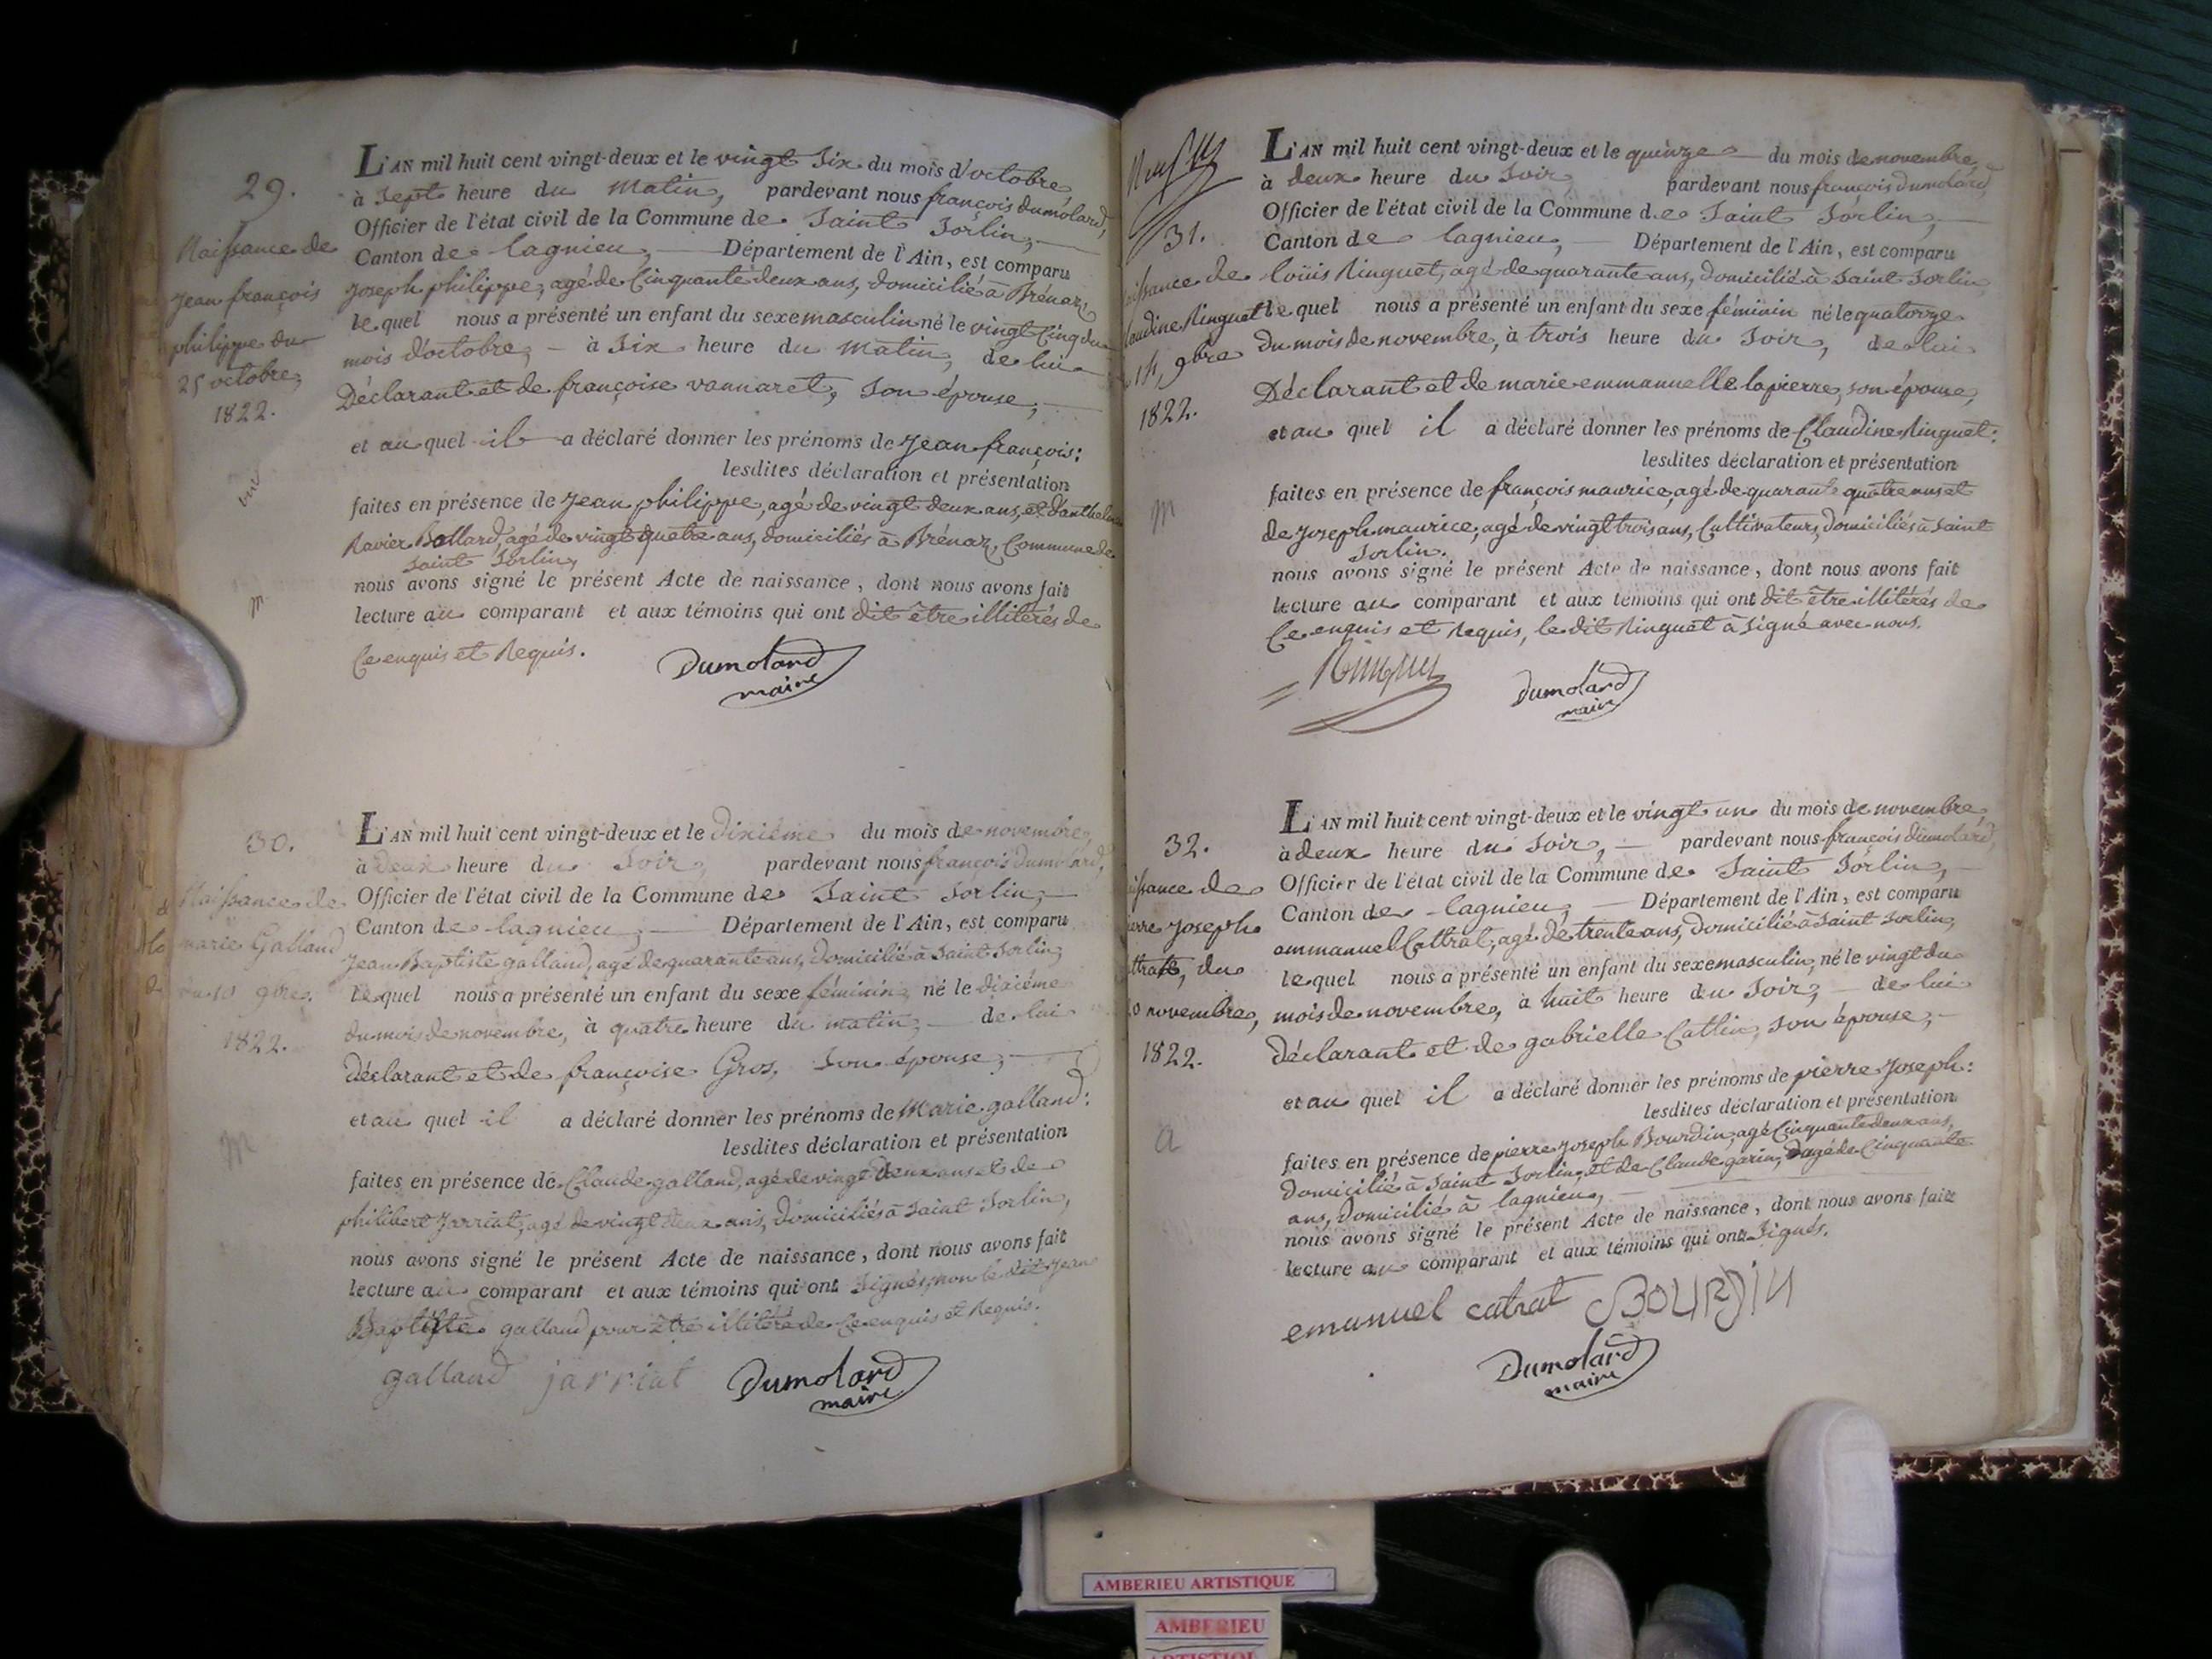 29.
Naissance de
jean françois
philippe du
25 octobre,
1822.
m
L'AN mil huit cent vingt-deux et le vingt six du mois d'octobre,
à sept heure du matin, pardevant nous françois dumolard,
Officier de l'état civil de la Commune de Saint Sorlin,
Canton de lagnieu, Département de l'Ain, est comparu
joseph philippe, agé de Cinquante deux ans, domicilié à Brénaz,
le quel nous a présenté un enfant du sexe masculin né le vingt Cinq du
mois d'octobre, à six heure du matin, de lui
Déclarant et de françoise vannaret, son épouse,
et au quel il a déclaré donner les prénoms de jean françois:
lesdites déclaration et présentation
faites en présence de jean philippe, agé de vingt deux ans, et d'anthelme
Ravier Ballard, agé de vingt quatre ans, domiciliés à Brénaz, Commune de
Saint Sorlin,
nous avons signé le présent Acte de naissance, dont nous avons fait
lecture au comparant et aux témoins qui ont dit être illitérés de
Ce enquis et Requis.
Dumolard
maire
30.
Naissance de
marie Galland
du 10 9bre.
1822.
M
L'AN mil huit cent vingt-deux et le dixiéme du mois de novembre,
à deux heure du soir, pardevant nous françois dumolard,
Officier de l'état civil de la Commune de Saint Sorlin,
Canton de lagnieu, Département de l'Ain, est comparu
jean Baptiste galland, agé de quarante ans, domicilié à Saint Sorlin,
le quel nous a présenté un enfant du sexe féminin, né le dixiéme
du mois de novembre, à quatre heure du matin, de lui
déclarant et de françoise Gros, son épouse,
et au quel il a déclaré donner les prénoms de Marie galland:
lesdites déclaration et présentation
faites en présence de Claude galland, agé de vingt deux ans et de
philibert jarriat, agé de vingt deux ans, domiciliés à Saint Sorlin,
nous avons signé le présent Acte de naissance, dont nous avons fait
lecture au comparant et aux témoins qui ont signés, non le dit jean
Baptiste galland pour être illitéré de Ce enquis et Requis.
galland jarriat Dumolard
maire
31.
aissance de
laudine Ringuet
14, 9bre
1822.
m
L'AN mil huit cent vingt-deux et le quinze du mois de novembre,
à deux heure du soir, pardevant nous françois dumolard,
Officier de l'état civil de la Commune de Saint Sorlin,
Canton de lagnieu, Département de l'Ain, est comparu
loüis Ringuet, agé de quarante ans, domicilié à Saint Sorlin
le quel nous a présenté un enfant du sexe féminin né le quatorze
du mois de novembre, à trois heure du soir, de lui
Déclarant et de marie emmanuelle lapierre, son épouse,
et au quel il a déclaré donner les prénoms de Claudine Ringuet:
lesdites déclaration et présentation
faites en présence de françois maurice, agé de quarante quatre ans et
de joseph maurice, agé de vingt trois ans, Cultivateurs, domiciliés à Saint
Sorlin.
nous avons signé le présent Acte de naissance, dont nous avons fait
lecture au comparant et aux témoins qui ont dit être illitérés de
Ce enquis et Requis, le dit Ringuet à signé avec nous.
Ringuet Dumolard
maire
32.
issance de
erre joseph
ttrat, du
0 novembre,
1822.
a
L'AN mil huit cent vingt-deux et le vingt un du mois de novembre
à deux heure du soir, pardevant nous françois dumolard,
Officier de l'état civil de la Commune de Saint Sorlin,
Canton de lagnieu, Département de l'Ain, est comparu
emmanuel Cattrat, agé de trente ans, domicilié à Saint Sorlin,
le quel nous a présenté un enfant du sexe masculin, né le vingt du
mois de novembre, à huit heure du soir, de lui
déclarant et de gabrielle Cattin, son épouse,
et au quel il a déclaré donner les prénoms de pierre joseph:
lesdites déclaration et présentation
faites en présence de pierre joseph Bourdin, agé Cinquante deux ans,
domicilié à Saint Sorlin, et de Claude garin, agé de Cinquante
ans, domicilié à lagnieu,
nous avons signé le présent Acte de naissance, dont nous avons fait
lecture au comparant et aux témoins qui ont signés.
emanuel catrat BOURDIN
Dumolard
maire
AMBERIEU ARTISTIQUE
AMBERIEU
ARTISTIQUE